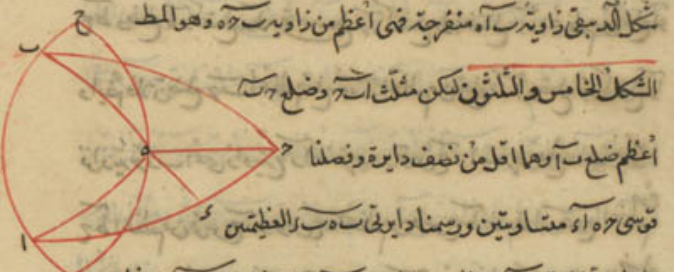 شكل آلد يبقى زاوية ب آه منفرجة فهى أعظم من زاوية ب حه وهو المط
الشكل الخامس والثلثون ليكن مثلث اب ح وضلع ح ب
أعظم ضلع ب آ وهما اقل من نصف دايرة وفصلنا
قوسى حه آء متساويتين ورسمنا دايرتى ب ه ب ء العظيمتين
ح
ب
ه
ح
ء
ا